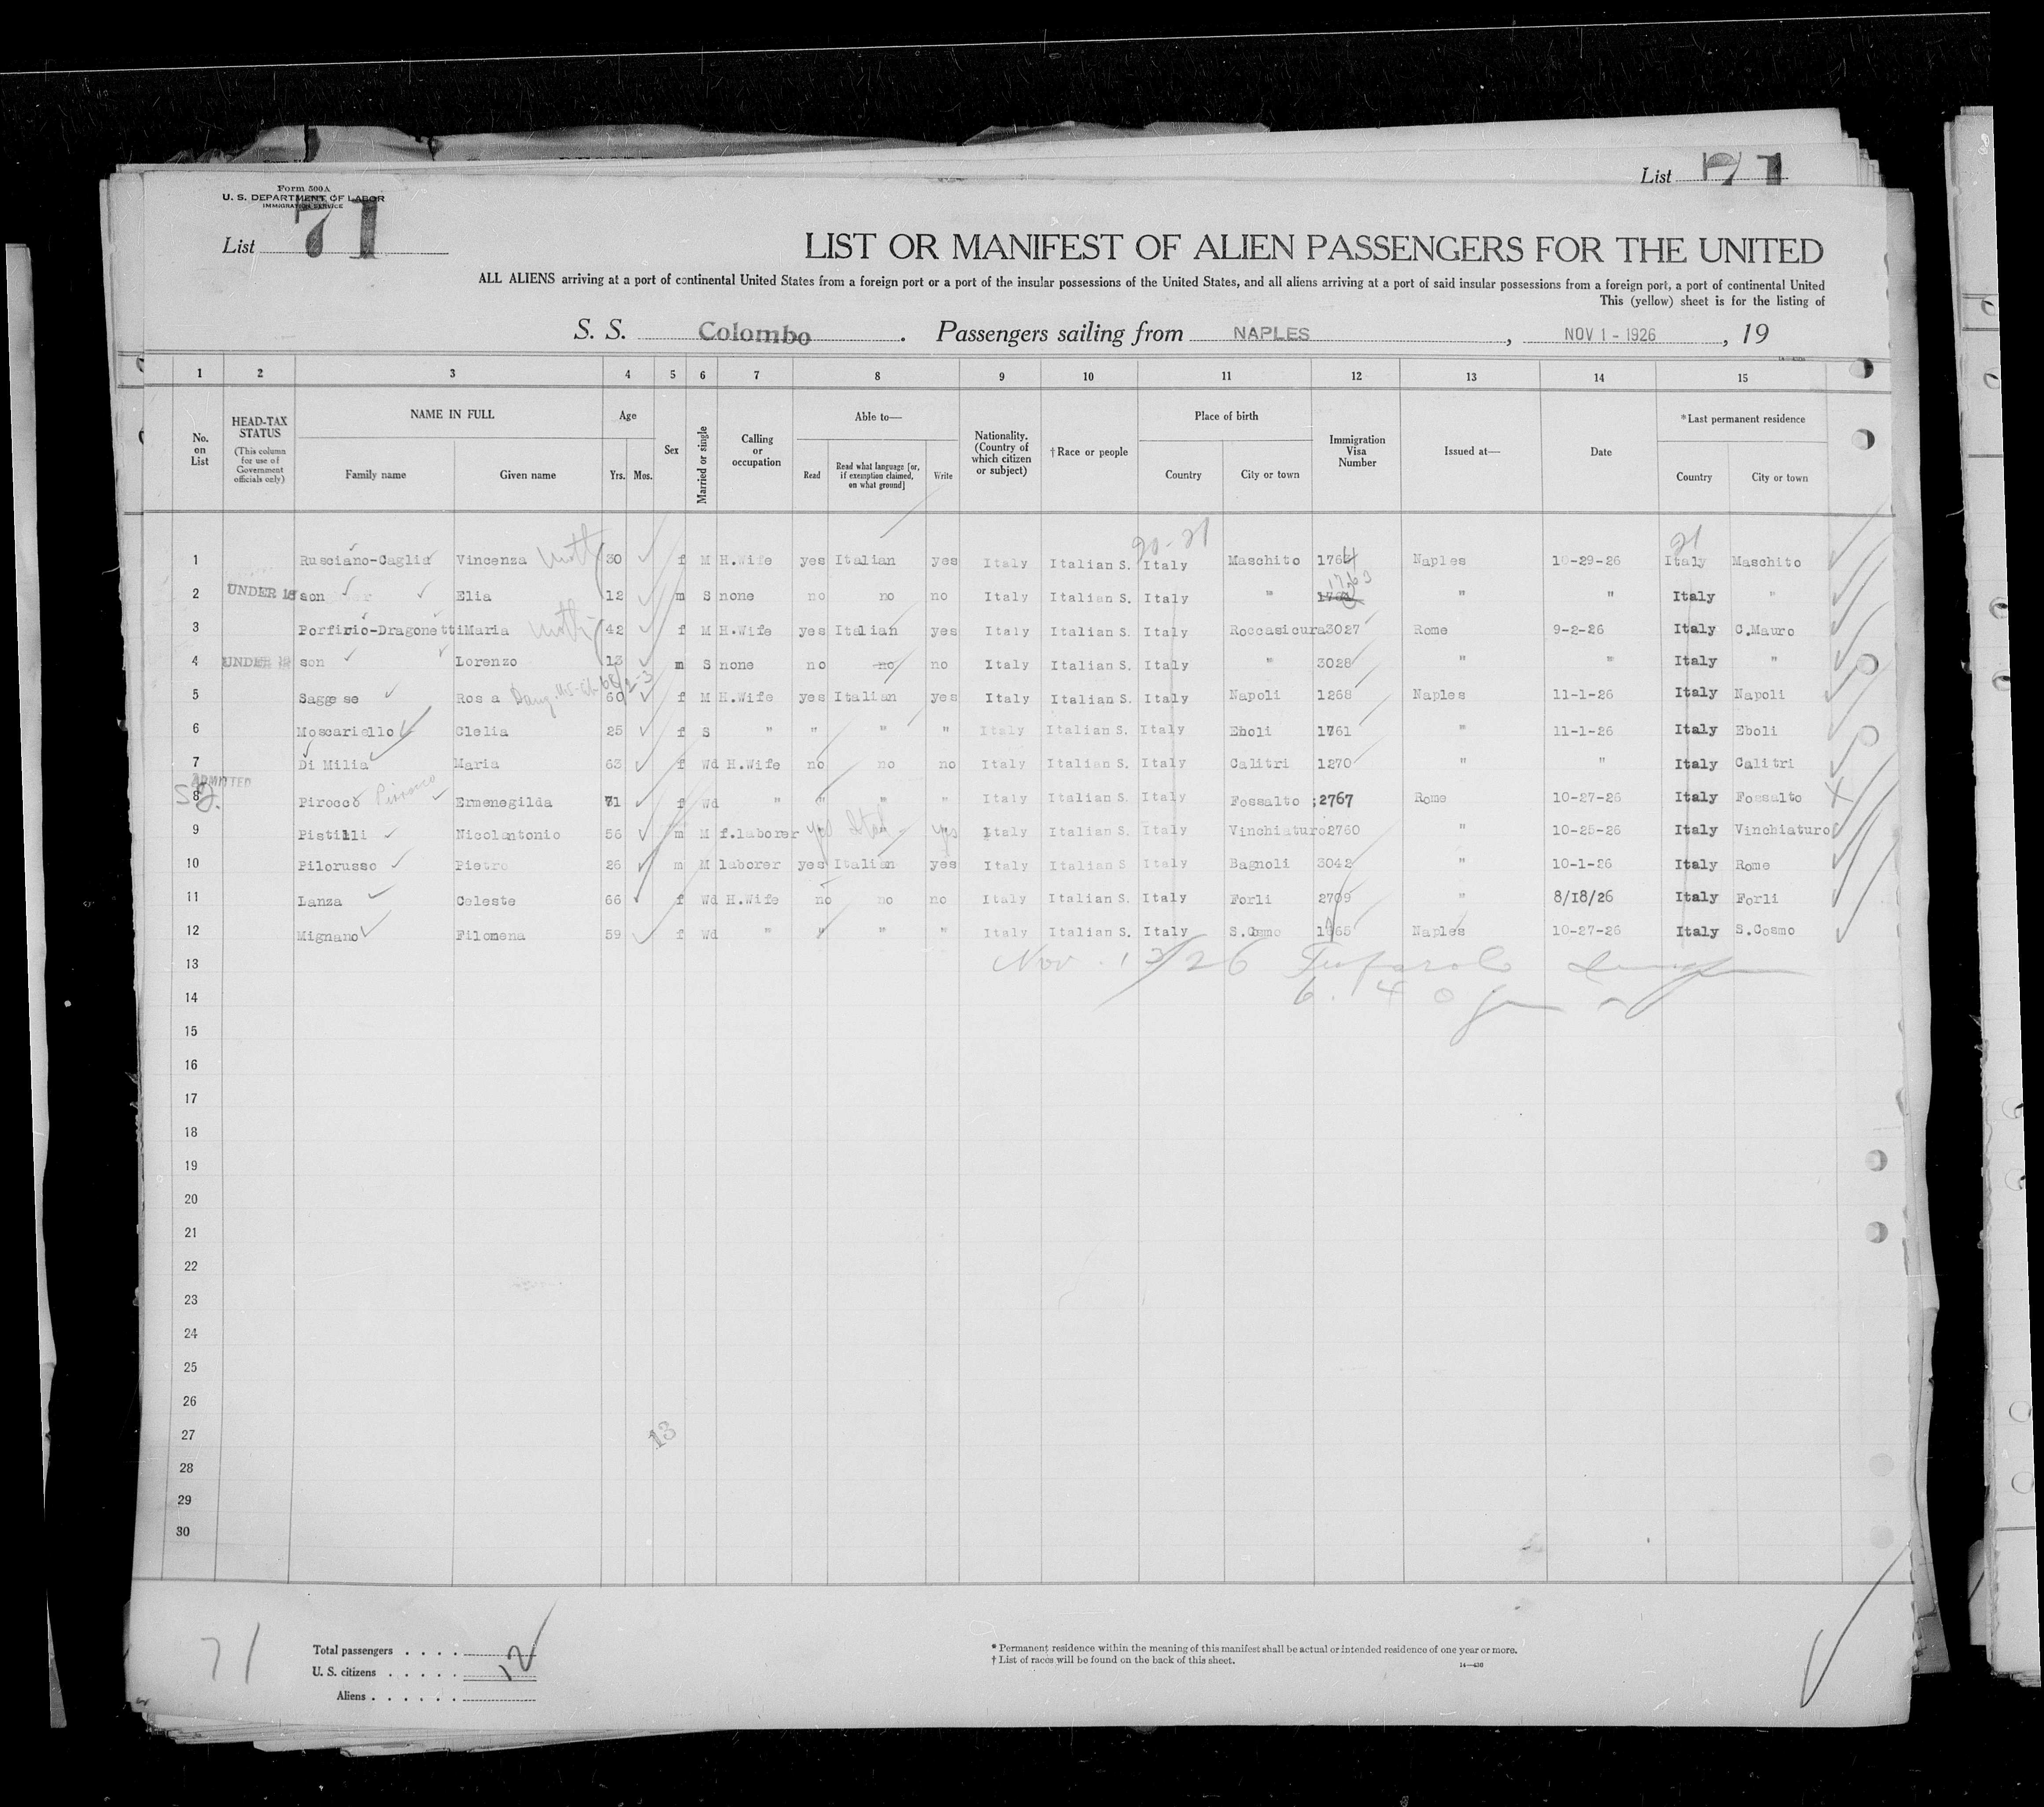 List 71
Form 500A
U. S. DEPARTMENT OF LABOR
IMMIGRATION SERVICE
List 71
LIST OR MANIFEST OF ALIEN PASSENGERS FOR THE UNITED
ALL ALIENS arriving at a port of continental United States from a foreign port or a port of the insular possessions of the United States, and all aliens arriving at a port of said insular possessions from a foreign port, a port of continental United
This (yellow) sheet is for the listing of
S. S. Colombo. Passengers sailing from NAPLES, NOV 1 - 1926, 19
1 2 3 4 5 6 7 8 9 10 11 12 13 14 15
No. on List
HEAD-TAX STATUS (This column for use of Government officials only)
NAME IN FULL
Family name Given name
Age
Yrs. Mos.
Sex
Married or single
Calling or occupation
Able to—
Read
Read what language [or, if exemption claimed, on what ground]
Write
Nationality. (Country of which citizen or subject)
† Race or people
Place of birth
Country City or town
Immigration Visa Number
Issued at—
Date
* Last permanent residence
Country City or town
21
1 Rusciano-Caglia Vincenza 30 f M H.Wife yes Italian yes Italy Italian S. Italy Maschito 1764 Naples 10-29-26 Italy Maschito
1763
2 UNDER 16 son Elia 12 m S none no no no Italy Italian S. Italy " " " Italy "
3 Porfirio-Dragonetti Maria 42 f M H.Wife yes Italian yes Italy Italian S. Italy Roccasicura 3027 Rome 9-2-26 Italy C.Mauro
4 UNDER son Lorenzo 13 m S none no no no Italy Italian S. Italy " 3028 " " Italy "
5 Saggese Rosa 60 f M H.Wife yes Italian yes Italy Italian S. Italy Napoli 1268 Naples 11-1-26 Italy Napoli
6 Moscariello Clelia 25 f S " " " " Italy Italian S. Italy Eboli 1761 " 11-1-26 Italy Eboli
7 Di Milia Maria 63 f Wd H.Wife no no no Italy Italian S. Italy Calitri 1270 " " Italy Calitri
ADMITTED
8 Pirocco Ermenegilda 71 f Wd " " " " Italy Italian S. Italy Fossalto ;2767 Rome 10-27-26 Italy Fossalto
9 Pistilli Nicolantonio 56 m M f.laborer yes Ital yes Italy Italian S. Italy Vinchiaturo 2760 " 10-25-26 Italy Vinchiaturo
10 Pilorusso Pietro 26 m M laborer yes Italian yes Italy Italian S Italy Bagnoli 3042 " 10-1-26 Italy Rome
11 Lanza Celeste 66 f Wd H.Wife no no no Italy Italian S. Italy Forli 2709 " 8/18/26 Italy Forli
12 Mignano Filomena 59 f Wd " " " " Italy Italian S. Italy S.Cosmo 1765 Naples 10-27-26 Italy S.Cosmo
13 Nov. 13/26
14
15
16
17
18
19
20
21
22
23
24
25
26
27
13
28
29
30
71
Total passengers . . . . 12
U. S. citizens . . . . .
Aliens . . . . . .
* Permanent residence within the meaning of this manifest shall be actual or intended residence of one year or more.
† List of races will be found on the back of this sheet.
14—430